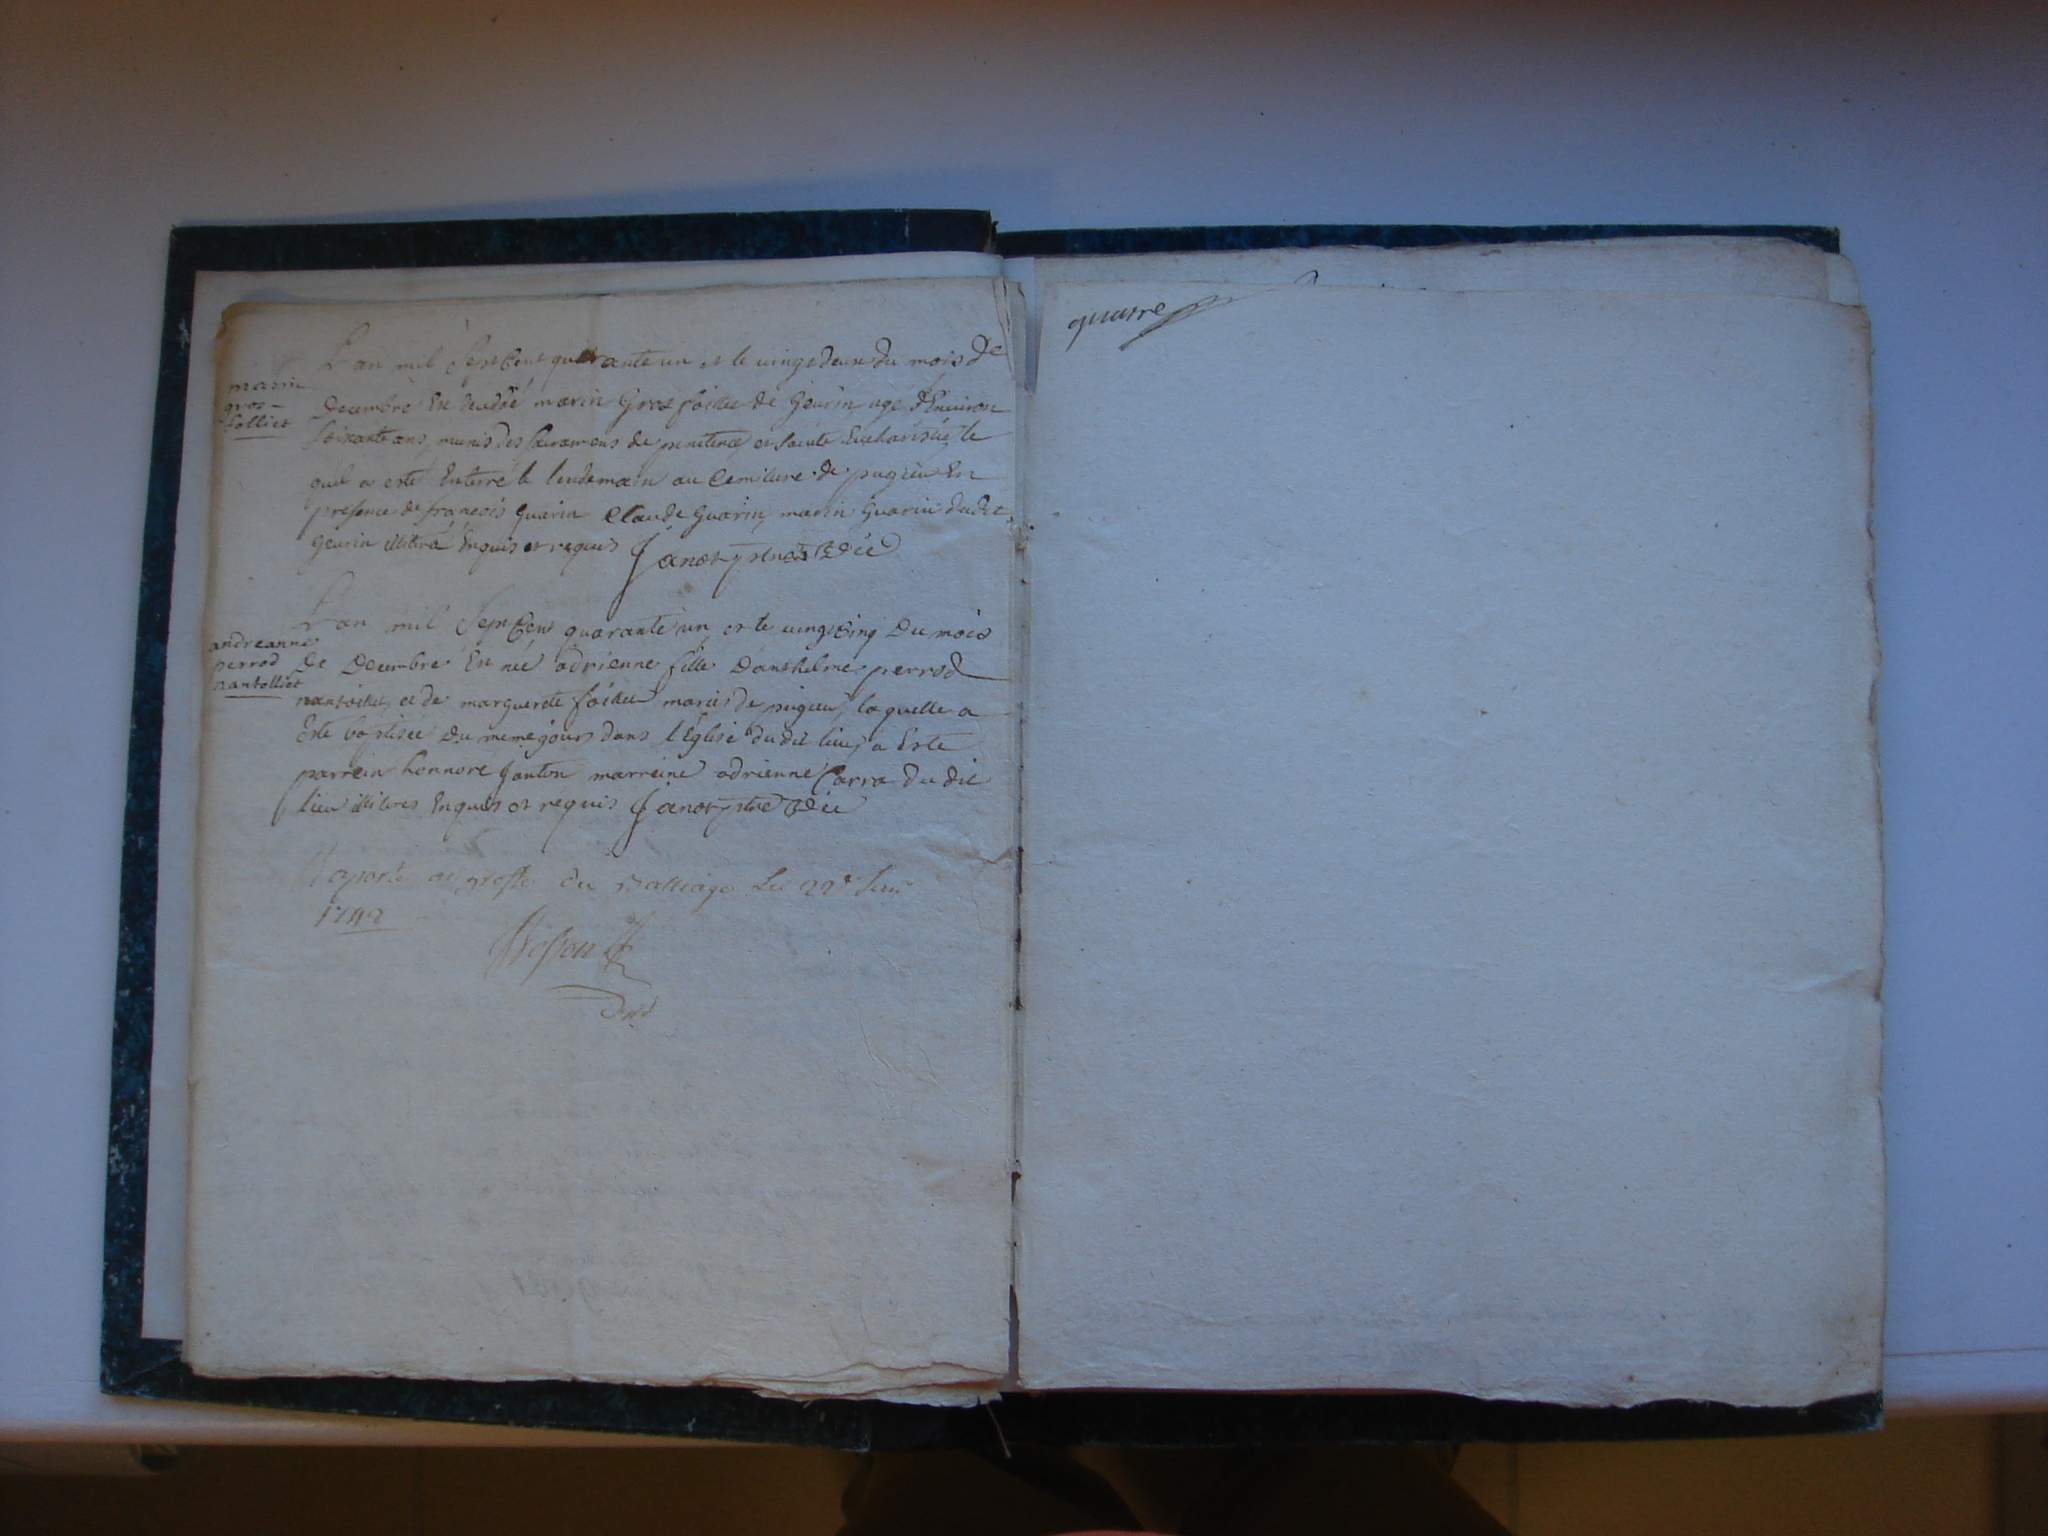 marin
gros
folliet
L'an mil Sept Cent quarante un et le vingt deux du mois de
Decembre Est decedé marin Gros foilliet de Geurin agé d'Environ
soixante ans, munis des sacremens de penitence et sainte Eucharistie, le
quel a esté Enterré le lendemain au Cemitiere de pugieu En
presence de françois Guarin Claude Guarin, marin Guarin dudit
Geurin Enquis et requis Janot Curé
andreanne
perrod
nantolliet
L'an mil Sept Cent quarante un, et le vingt Cinq Du mois
De Decembre Est née adrienne fille D'anthelme perrod
et de marguerete maries de pugieu, laquelle a
Esté baptisée Du meme jours dans l'Eglise du dit lieu, a Esté
parrein honnore Janton marreine adrienne Carra du dit
lieu illiteres Enquis et requis Janot
Raporté au greffe du Balliage Le 22e
1742
quatre